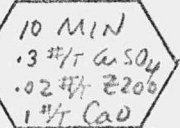 10 MIN
.3 #/T CuSO4
.02 #/T Z200
1 #/T CaO